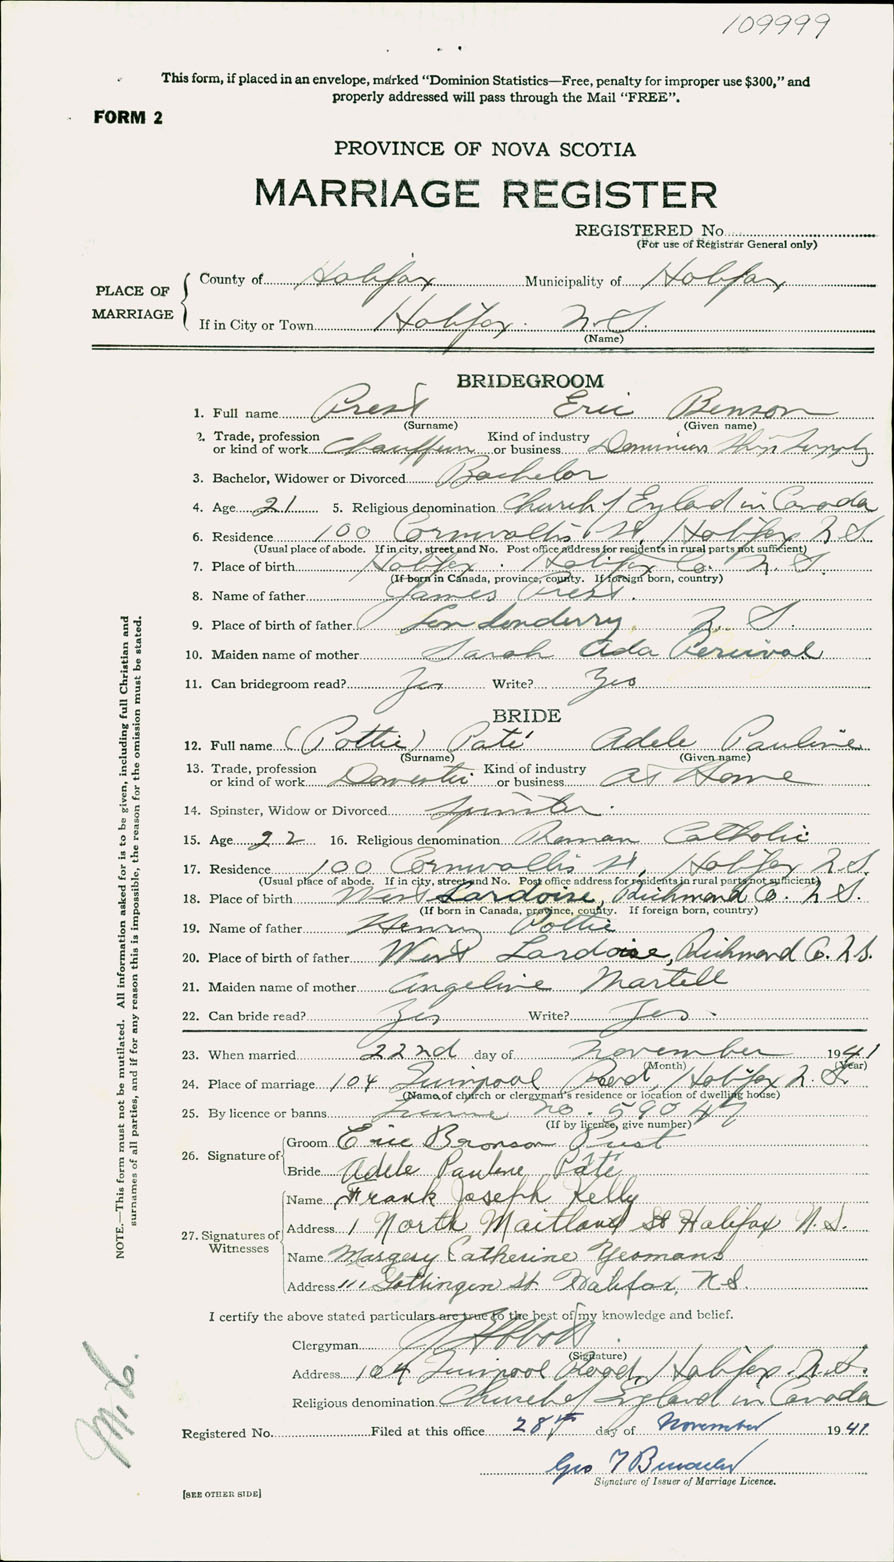 109999
This form, if placed in an envelope, marked “Dominion Statistics—Free, penalty for improper use $300,” and
properly addressed will pass through the Mail “FREE”.
FORM 2
PROVINCE OF NOVA SCOTIA
MARRIAGE REGISTER
REGISTERED No.
(For use of Registrar General only)
PLACE OF MARRIAGE
County of Halifax Municipality of Halifax
If in City or Town Halifax. N.S.
(Name)
BRIDEGROOM
1. Full name Prest Eric Benson
(Surname) (Given name)
2. Trade, profession or kind of work Chauffeur Kind of industry or business Dominion Ship Supply
3. Bachelor, Widower or Divorced Bachelor
4. Age 21 5. Religious denomination Church of England in Canada
6. Residence 100 Cornwallis St, Halifax N.S.
(Usual place of abode. If in city, street and No. Post office address for residents in rural parts not sufficient)
7. Place of birth Halifax. Halifax Co. N.S.
(If born in Canada, province, county. If foreign born, country)
8. Name of father James Prest.
9. Place of birth of father Londonderry N.S.
10. Maiden name of mother Sarah Ada Percival
11. Can bridegroom read? Yes Write? Yes
BRIDE
12. Full name (Pottie) Paté Adele Pauline
(Surname) (Given name)
13. Trade, profession or kind of work Domestic Kind of industry or business At Home
14. Spinster, Widow or Divorced Spinster.
15. Age 22 16. Religious denomination Roman Catholic
17. Residence 100 Cornwallis St, Halifax N.S.
(Usual place of abode. If in city, street and No. Post office address for residents in rural parts not sufficient)
18. Place of birth West Lardoise, Richmond Co. N.S.
(If born in Canada, province, county. If foreign born, country)
19. Name of father Henry Pottie
20. Place of birth of father West Lardoise, Richmond Co. N.S.
21. Maiden name of mother Angeline Martell
22. Can bride read? Yes Write? Yes.
23. When married 22nd day of November 1941
(Month) (Year)
24. Place of marriage 104 Quinpool Road, Halifax N.S.
(Name of church or clergyman's residence or location of dwelling house)
25. By licence or banns no. 59047
(If by licence, give number)
26. Signature of
Groom Eric Bronson Prest
Bride Adele Pauline Paté
27. Signatures of Witnesses
Name Frank Joseph Kelly
Address 1 North Maitland St Halifax N.S.
Name Margery Catherine Yeomans
Address 111 Gottingen St. Halifax, N.S.
I certify the above stated particulars are true to the best of my knowledge and belief.
Clergyman
(Signature)
Address 104 Quinpool Road, Halifax. N.S.
Religious denomination Church of England in Canada
Registered No. Filed at this office 28th day of November 1941.
Geo
Signature of Issuer of Marriage Licence.
[SEE OTHER SIDE]
NOTE.—This form must not be mutilated. All information asked for is to be given, including full Christian and
surnames of all parties, and if for any reason this is impossible, the reason for the omission must be stated.